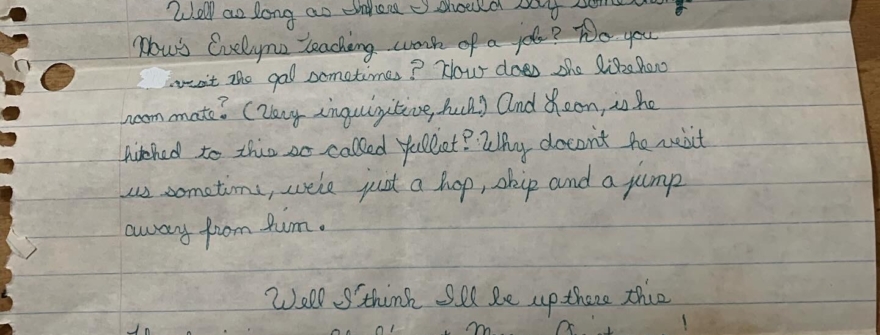 Well as long as I'm here I should say something
How's Evelyns teaching work of a job? Do you
visit the gal sometimes? How does she like her
room mate? (Very inquizitive, huh!) And Leon, is he
hitched to this so called Julliet? Why doesn't he visit
us sometime, we're just a hop, skip and a jump
away from him.
Well I think I'll be up there this